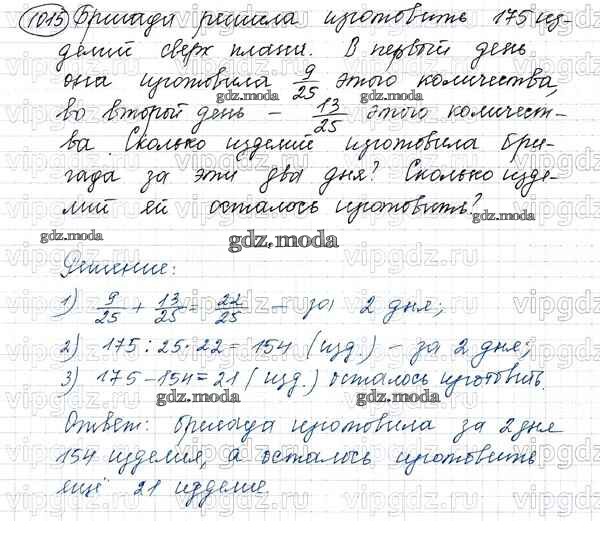 1015 Бригада решила изготовить 175 из-
делий сверх плана. В первый день
она изготовила 9/25 этого количества,
во второй день – 13/25 этого количест-
ва. Сколько изделий изготовила бри-
гада за эти два дня? Сколько изде-
лий ей осталось изготовить?
Решение:
1) 9/25 + 13/25 = 22/25 – за 2 дня;
2) 175 : 25 · 22 = 154 (изд.) – за 2 дня;
3) 175 – 154 = 21 (изд.) осталось изготовить.
Ответ: бригада изготовила за 2 дня
154 изделия, а осталось изготовить
ещё 21 изделие.
gdz.moda
vipgdz.ru